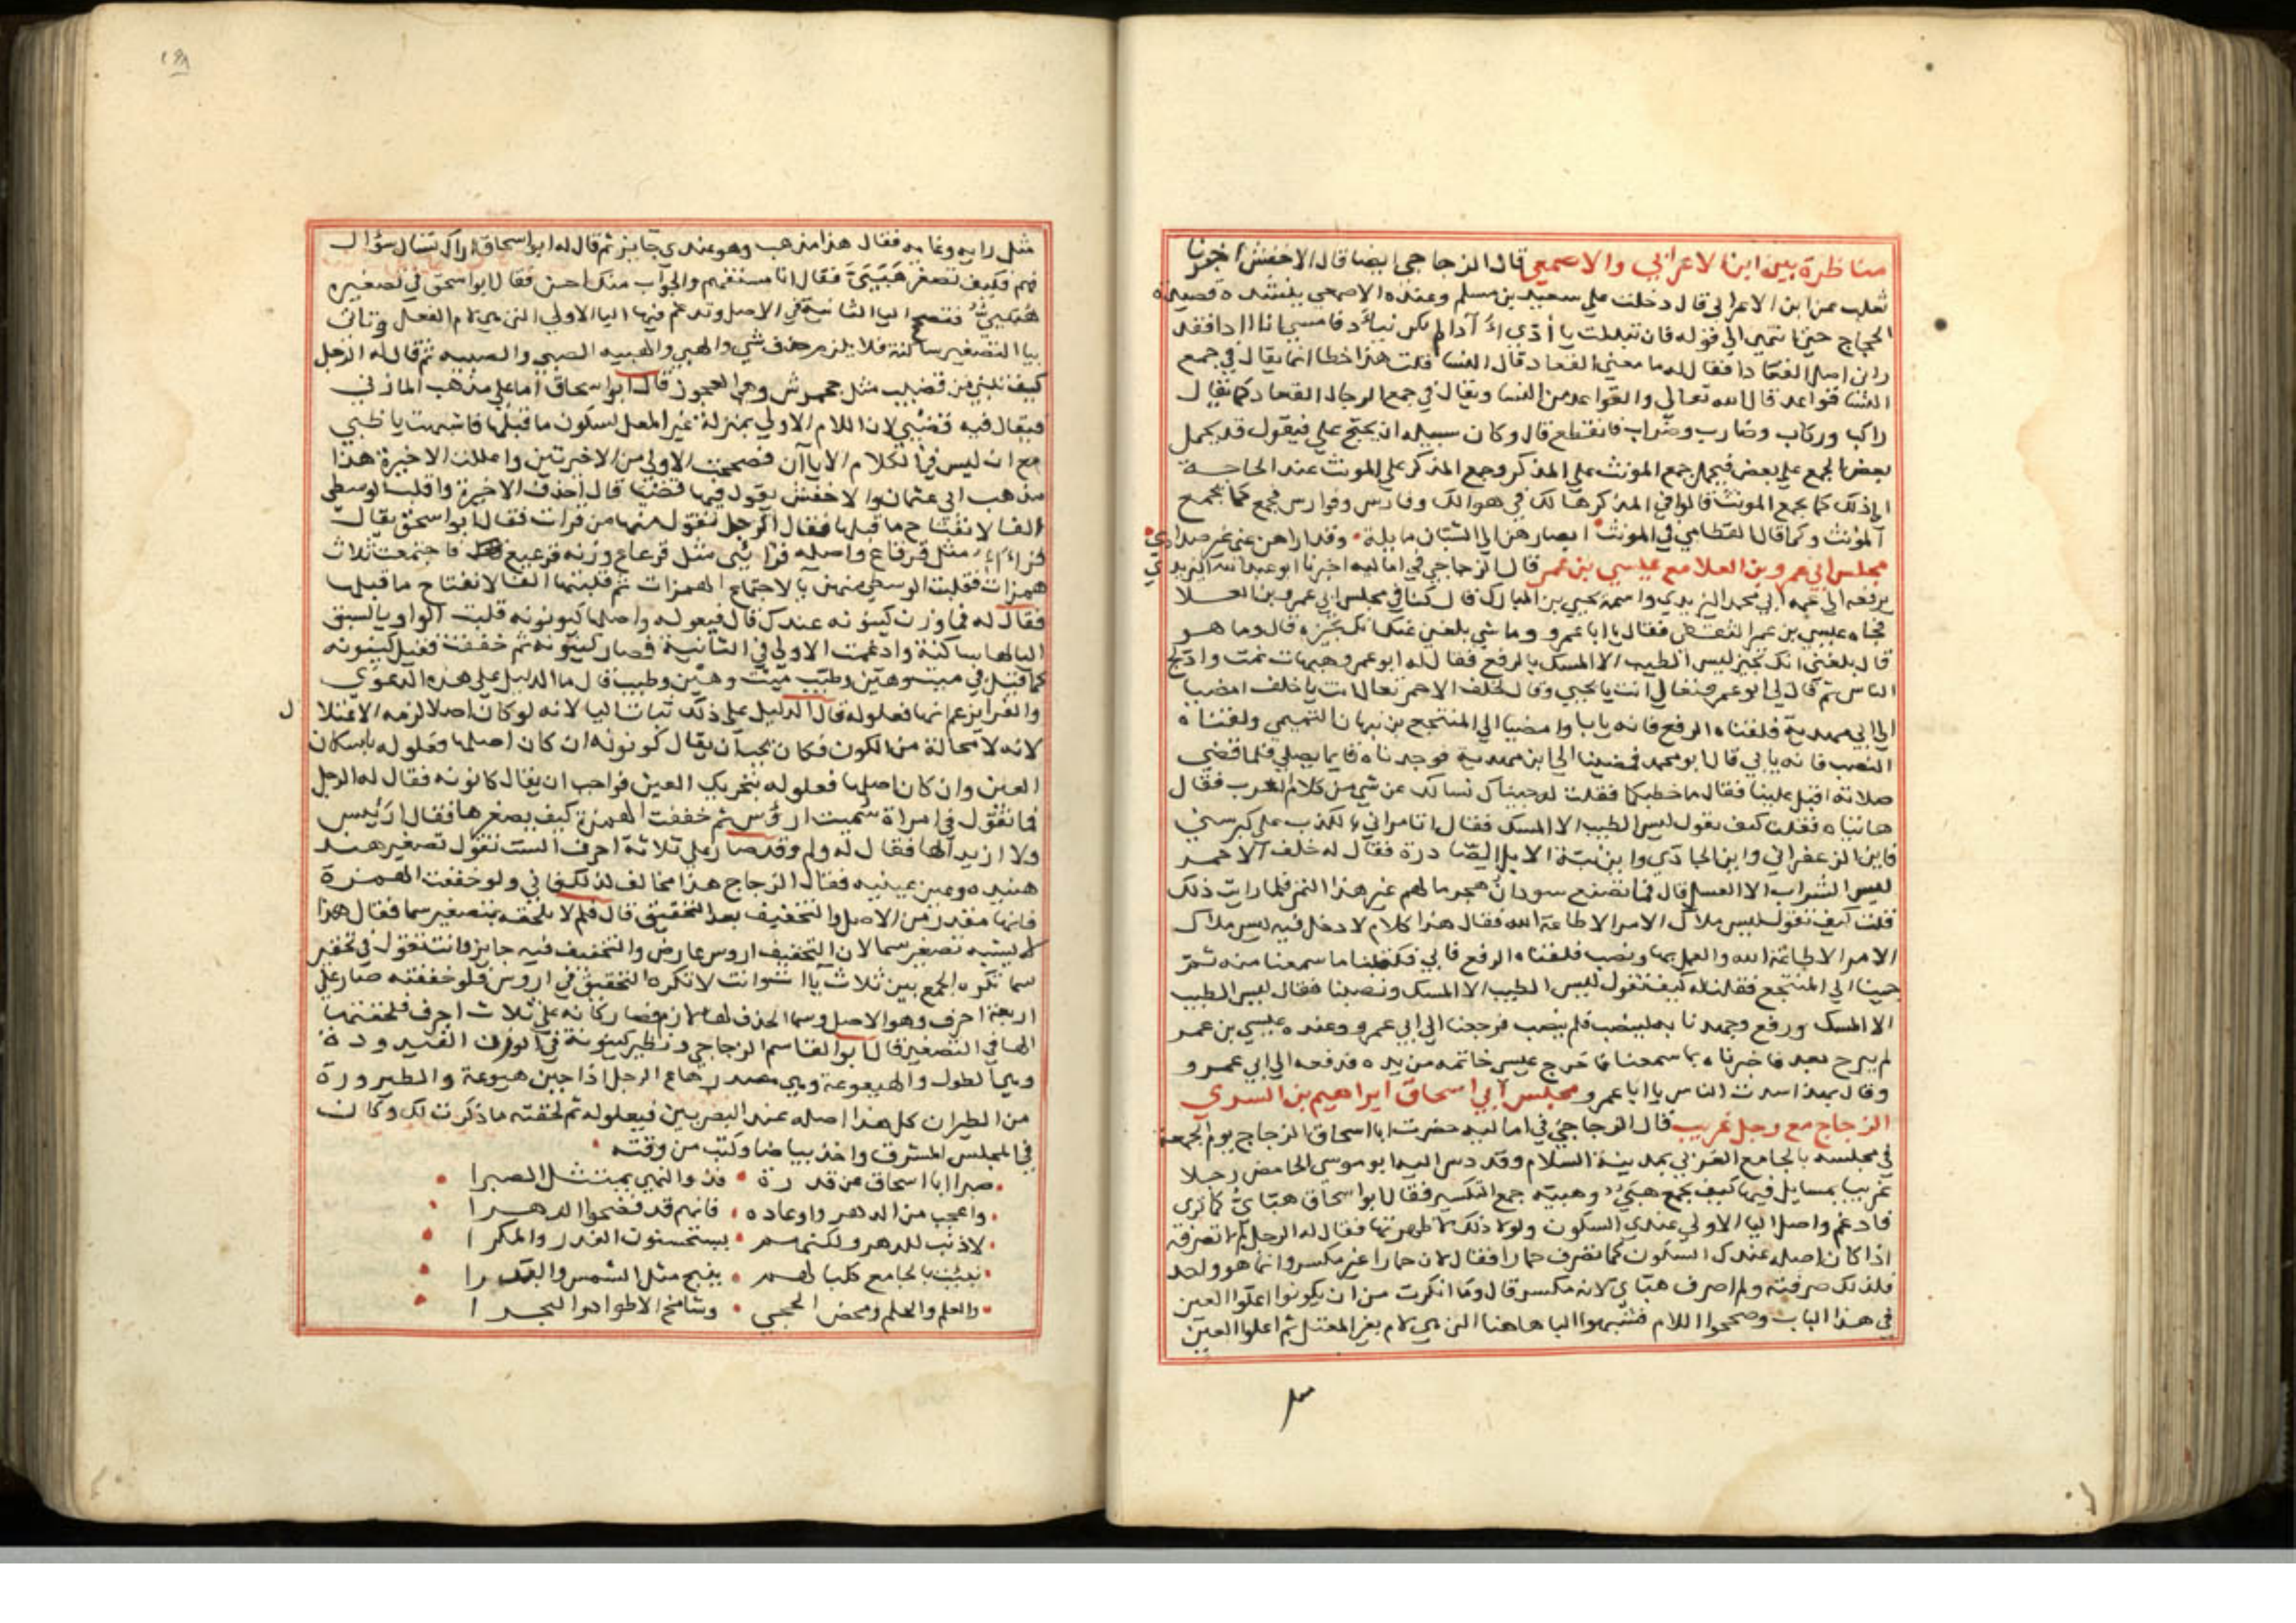 مناظرة بين ابن الاعرابي والاصمعي قال الزجاجي ايضا قال الاخفش اخبرنا
ثعلب عن ابن الاعرابي قال دخلت علي سعيد بن مسلم وعنده الاصمعي ينشده قصيدة
الحجاج حتى انتهى الي قوله فان تبدلت يا أدي آدا لم يكن ينآد فامسي انا ادا فقد
راني اصل القعادا فقال له ما معني القعاد قال النسا قلت هذا خطا انما يقال في جمع
النسا قواعد قال الله تعالي والقواعد من النسا ويقال في جمع الرجال القعاد كما يقال
راكب وركاب وضارب وضراب فانقطع قال وكان سبيله ان يحتج علي فيقول قد يحمل
بعض الجمع علي بعض فيحمل جمع المونث علي المذكر وجمع المذكر علي المونث عند الحاجة
الي ذلك كما يجمع المونث قالوا في المذكر هالك في هوالك وفارس وفوارس فجمع كما يجمع
المؤنث وكما قال القطامي في المونث ابصارهن الي الشبان مايلة وقد اراهن عني غير صدادي
مجلس ابي عمرو بن العلا مع عيسي بن عمر قال الزجاجي في اماليه اخبرنا ابو عبدالله اليزيدي
يرفعه الي عمه ابي محمد اليزيدي واسمه يحيي بن المبارك قال كنا في مجلس ابي عمرو بن العلا
فجاه عيسي بن عمر الثقفي فقال يا ابا عمرو وما شي بلغني عنك انك تجيزه قال وما هو
قال بلغني انك تجيز ليس الطيب الا المسك بالرفع فقال له ابو عمرو هيهات نمت وادلج
الناس ثم قال لي ابو عمرو تعال انت يا يحيي وقال لخلف الاحمر تعال انت يا خلف امضيا
الي ابي مهدية فلقناه الرفع فانه يابا وامضيا الي المنتجع بن نبهان التميمي ولقناه
النصب فانه يابي قال ابو محمد فمضينا الي ابن مهدية فوجدناه قايما يصلي فلما قضي
صلاته اقبل علينا فقال ما خطبكما فقلت له جيناك نسالك عن شي من كلام العرب فقال
هاتياه فقلت كيف تقول ليس الطيب الا المسك فقال اتامراني بالكذب علي كبر سني
فاين الزعفراني واين الجادي واين بنة الابل الصادرة فقال له خلف الاحمر
ليس الشراب الا العسل قال فما تصنع سودان هجر ما لهم غير هذا التمر فلما رايت ذلك
قلت كيف تقول ليس ملاك الامر الا طاعة الله فقال هذا كلام لا دخل فيه ليس ملاك
الامر الا طاعة الله والعمل بها ونصب فلقناه الرفع فابي فكتبنا ما سمعنا منه ثم
جينا الي المنتجع فقلنا له كيف تقول ليس الطيب الا المسك ونصبنا فقال ليس الطيب
الا المسك ورفع وجهدنا به لينصب فلم ينصب فرجعنا الي ابي عمرو وعنده عيسي بن عمر
لم يبرح بعد فاخبرناه بما سمعنا فاخرج عيسي خاتمه من يده فدفعه الي ابي عمرو
وقال بهذا سدت الناس يا ابا عمرو مجلس ابي اسحاق ابراهيم بن السدي
الزجاج مع رجل غريب قال الزجاجي في اماليه حضرت ابا اسحاق الزجاج يوم الجمعة
في مجلسه بالجامع الغربي بمدينة السلام وقد دس اليه ابو موسي الحامض رجلا
غريبا بمسايل فيها كيف يجمع هبي وهبيه جمع التكسير فقال ابو اسحاق هباي كما تري
فادغم واصل اليا الاولي عندي السكون ولولا ذلك لاظهرتها فقال له الرجل لم لا تصرفه
اذا كان اصله عندك السكون كما تصرف حمارا فقال لان حمارا غير مكسر وانما هو واحد
فلذلك صرفته ولم اصرف هباي لانه مكسر قال وما انكرت من ان يكونوا اعلوا العين
في هذا الباب وصححوا اللام فشبهوا اليا هاهنا التي هي لام بغير المعتل ثم اعلوا العين
مثل رايه وغايه فقال هذا مذهب وهو عندي جايز ثم قال له ابو اسحاق اراك تسال سؤال
فهم فكيف تصغر هبي فقال انا مستفهم والجواب منك احسن فقال ابو اسحق في تصغيره
هبيي فتصح اليا الثانية في الاصل وتدغم فيها اليا الاولي التي هي لام الفعل وتاتي
بيا التصغير ساكنة فلا يلزم حذف شي والهبي والهبيه الصبي والصبيه ثم قال له الرجل
كيف تبني من قضيب مثل جحمرش وهو العجوز قال ابو اسحاق اما علي مذهب المازني
فيقال فيه قضيي لان اللام الاولي بمنزلة غير المعل لسكون ما قبلها فاشبهت يا ظبي
مع ان ليس في الكلام الا ياآن فصححت الاولي من الاخرتين واعللت الاخيرة هذا
مذهب ابي عثمان والاخفش يقول فيها قضيا قال احذف الاخيرة واقلب الوسطي
الفا لانفتاح ما قبلها فقال الرجل تقول منها من قرات فقال ابو اسحق يقال
قرااء مثل قرقاع واصله قرائي مثل قرعاع وزنه قرععع فاجتمعت ثلاث
همزات فقلبت الوسطي منهن يا لاجتماع الهمزات ثم قلبتها الفا لانفتاح ما قبلها
فقال له فما وزن كينونه عندك قال فيعوله واصلها كيونونه قلبت الواو يا لسبق
اليا لها ساكنة وادغمت الاولي في الثانية فصار كينونه ثم خففت فقيل كينونه
كما قيل في ميت وهين وطيب ميت وهين وطيب قال ما الدليل علي هذه الدعوي
والفرا يزعم انها فعلوله قال الدليل علي ذلك ثبات اليا لانه لو كان اصلا لزمه الاعتلا ل
لانه لا محالة من الكون فكان يجب ان يقال كونونه ان كان اصلها فعلوله باسكان
العين وان كان اصلها فعلوله بتحريك العين فواجب ان يقال كانونه فقال له الرجل
فما تقول في امراة سميت ارؤس ثم خففت الهمزة كيف يصغرها فقال اريس
ولا ازيد الها فقال له ولم وقد صار علي ثلاثة احرف الست تقول تصغير هند
هنيده وعين عيينه فقال الزجاج هذا مخالف لذلك فاني ولو خففت الهمزة
فانها مقدرة في الاصل والتخفيف بعد التحقيق قال فلم لا تلحقه بتصغير سما فقال هذا
لا يشبه تصغير سما لان التخفيف اروس عارض والتخفيف فيه جايز وانت تقول في تحقير
سما تكره الجمع بين ثلاث ياات وانت لا تكره التحقيق في اروس فلو خففته صار علي
اربعة احرف وهو الاصل وسما الحذف لها لازم فصار كانه علي ثلاث احرف فلحقتها
الها في التصغير قال ابو القاسم الزجاجي ونظير كينونة في الوزن القيدودة
وهي الطول والهيعوعة وهي مصدر هاع الرجل اذا جبن هيوعة والطيرورة
من الطيران كل هذا اصله عند البصريين فيعلوله ثم لحقته ما ذكرت لك وكان
في المجلس المشرف واخذ بياضا وكتب من وقته
صبرا ابا اسحاق من قدرة فذو النهي يمتثل الصبرا
واعجب من الدهر واوغاده فانهم قد فضحوا الدهرا
لا ذنب للدهر ولكنهم يستحسنون الغدر والمكرا
نبيت بالجامع كلبا لهم ينبح مثل الشمس والبدرا
والعلم والحلم ومحض الحجي وشامخ الاطواد والبحرا